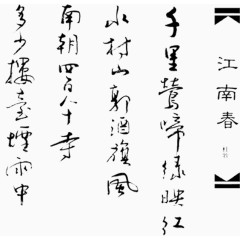 江南春
杜牧
千里莺啼绿映红
水村山郭酒旗风
南朝四百八十寺
多少楼臺烟雨中